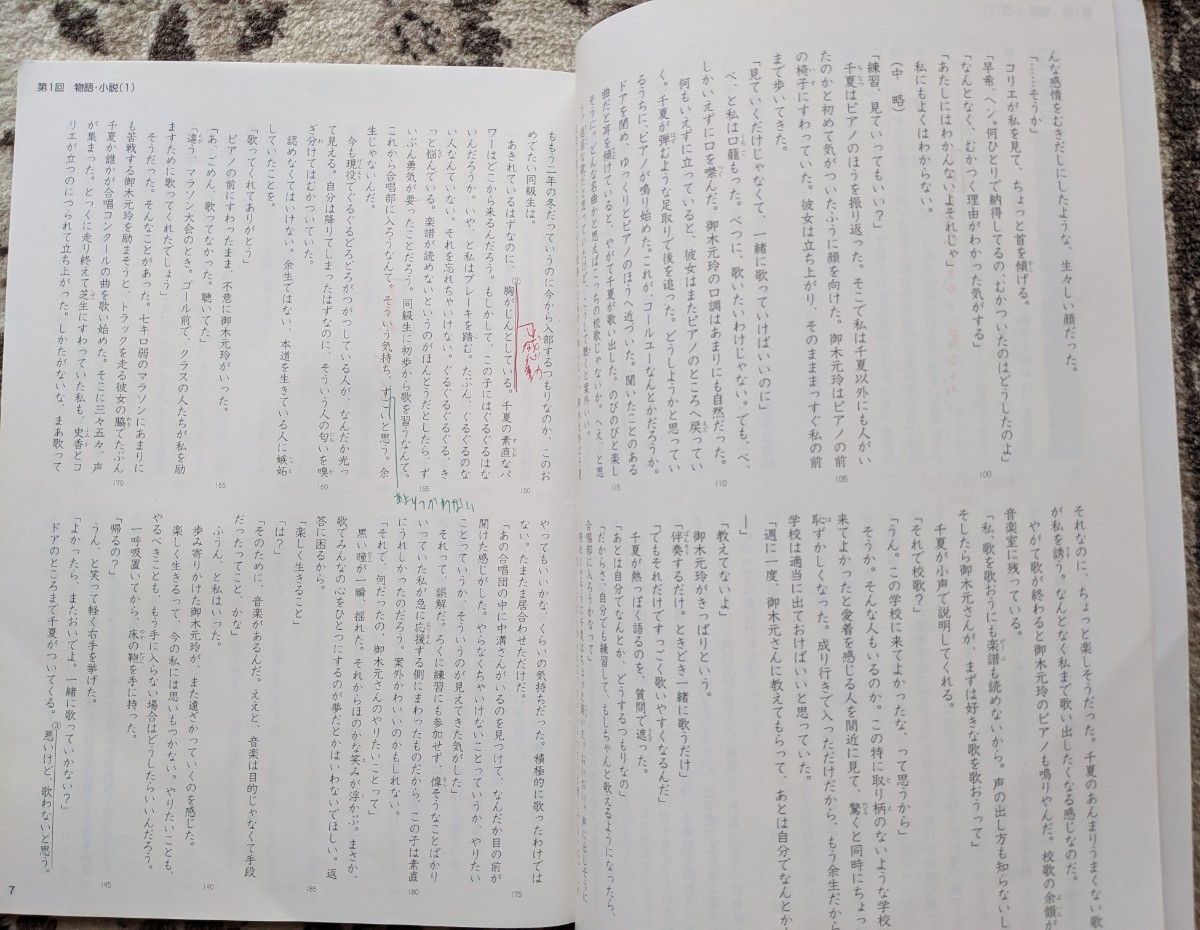 んな感情をむきだしにしたような、生々しい顔だった。
「……そうか」
コリエが私を見て、ちょっと首を傾げる。
「早希、ヘン。何ひとりで納得してるの、むかついたのはどうしたのよ」
100
「なんとなく、むかつく理由がわかった気がする」
「あたしにはわかんないよそれじゃ」
私にもよくはわからない。
（中略）
「練習、見ていってもいい?」
千夏はピアノのほうを振り返った。そこで私は千夏以外にも人がい
たのかと初めて気がついたふうに顔を向けた。御木元玲はピアノの前
105
の椅子にすわっていた。彼女は立ち上がり、そのまままっすぐ私の前
まで歩いてきた。
「見ていくだけじゃなくて、一緒に歌っていけばいいのに」
べ、と私は口籠もった。べつに、歌いたいわけじゃない。でも、べ、
しかいえずに口を噤んだ。御木元玲の口調はあまりにも自然だった。
110
何もいえずに立っていると、彼女はまたピアノのところへ戻ってい
く。千夏が弾むような足取りで後を追った。どうしようかと思ってい
るうちに、ピアノが鳴り始めた。これが、コールユーなんとかだろうか。
ドアを閉め、ゆっくりとピアノのほうへ近づいた。聞いたことのある
曲だと耳を傾けていると、やがて千夏が歌い出した。のびのびと楽し
115
そうに。どんな名曲かと思えばこっちの校歌じゃないか。へえ、と思
それなのに、ちょっと楽しそうだった。千夏のあんまりうまくない歌
が私を誘う。なんとなく私まで歌い出したくなる感じなのだ。
やがて歌が終わると御木元玲のピアノも鳴りやんだ。校歌の余韻が
音楽室に残っている。
「私、歌を歌おうにも楽譜も読めないから。声の出し方も知らないし
そしたら御木元さんが、まずは好きな歌を歌おうって」
千夏が小声で説明してくれる。
「それで校歌?」
「うん。この学校に来てよかったな、って思うから」
そうか。そんな人もいるのか。この特に取り柄のないような学校
来てよかったと愛着を感じる人を間近に見て、驚くと同時にちょっ
恥ずかしくなった。成り行きで入っただけだから、もう余生だから
学校は適当に出ておけばいいと思っていた。
「週に一度、御木元さんに教えてもらって、あとは自分でなんとか
―」
「教えてないよ」
御木元玲がきっぱりという。
「伴奏するだけ。ときどき一緒に歌うだけ」
「でもそれだけですっごく歌いやすくなるんだ」
千夏が熱っぽく語るのを、質問で遮った。
「あとは自分でなんとか、どうするつもりなの」
「だからさ、自分でも練習して、もしちゃんと歌えるようになったら、
合唱部に入ろうかなって」
第1回 物語・小説(1)
ももう二年の冬だっていうのに今から入部するつもりなのか、このお
めでたい同級生は。
あきれているはずなのに、①胸がじんとしている。千夏の素直なパ
150
ワーはどこから来るんだろう。もしかして、この子にはぐるぐるはな
いんだろうか。いや、と私はブレーキを踏む。たぶん、ぐるぐるのな
い人なんていない。それを忘れちゃいけない。ぐるぐるぐるぐる、き
っと悩んでいる。楽譜が読めないというのがほんとうだとしたら、ず
いぶん勇気が要ったことだろう。同級生に初歩から歌を習うなんて。
155
これから合唱部に入ろうなんて。そういう気持ち、すごいと思う。余
生じゃないんだ。
今も現役でぐるぐるどろどろがつがつしている人が、なんだか光っ
て見える。自分は降りてしまったはずなのに、そういう人の匂いを嗅
ぎ分けてはむかついていた。
160
認めなくてはいけない。余生ではない、本道を生きている人に嫉妬
していたことを。
「歌ってくれてありがとう」
ピアノの前にすわったまま、不意に御木元玲がいった。
「あ、ごめん、歌ってなかった。聴いてた」
165
「違う、マラソン大会のとき。ゴール前で、クラスの人たちが私を励
ますために歌ってくれたでしょう」
そうだった。そんなことがあった。七キロ弱のマラソンにあまりに
も苦戦する御木元玲を励まそうと、トラックを走る彼女の脇でたぶん
千夏か誰かが合唱コンクールの曲を歌い始めた。そこに三々五々、声
170
が集まった。とっくに走り終えて芝生にすわっていた私も、史香とコ
リエが立つのにつられて立ち上がった。しかたがないな、まあ歌って
感動
あまりつかわない
やってもいいかな、くらいの気持ちだった。積極的に歌ったわけでは
ない。たまたま居合わせただけだ。
175
「あの合唱団の中に中溝さんがいるのを見つけて、なんだか目の前が
開けた感じがした。やらなくちゃいけないことっていうか、やりたい
ことっていうか、そういうのが見えてきた気がした」
それって、誤解だ。ろくに練習にも参加せず、偉そうなことばかり
いっていた私が急に応援する側にまわったものだから、この子は素直
180
にうれしかったのだろう。案外かわいいのかもしれない。
「それで、何だったの、御木元さんのやりたいことって」
黒い瞳が一瞬、揺れた。それからほのかな笑みが浮かぶ。まさか、
歌でみんなの心をひとつにするのが夢だとかはいわないでほしい。返
答に困るから。
185
「楽しく生きること」
「は?」
「そのために、音楽があるんだ。ええと、音楽は目的じゃなくて手段
だったってこと、かな」
ふうん、と私はいった。
190
歩み寄りかけた御木元玲が、また遠ざかっていくのを感じた。
楽しく生きるって、今の私には思いもつかない。やりたいことも、
やるべきことも、もう手に入らない場合はどうしたらいいんだろう。
一呼吸置いてから、床の鞄を手に持った。
「帰るの?」
うん、と笑って軽く右手を挙げた。
195
「よかったら、またおいでよ。一緒に歌っていかない?」
ドアのところまで千夏がついてくる。③悪いけど、歌わないと思う。
7